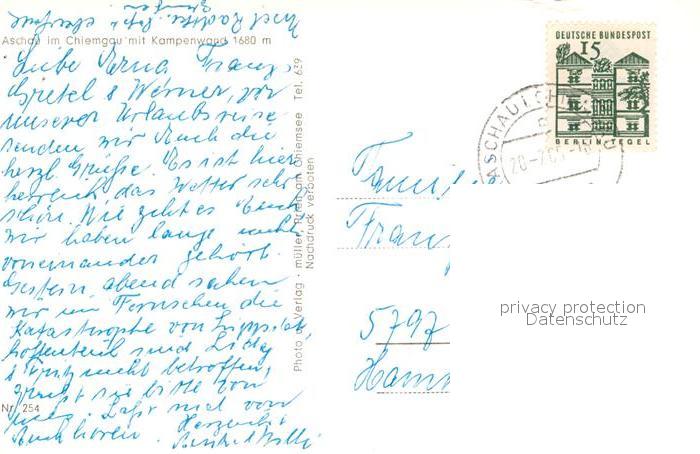 Aschau im Chiemgau mit Kampenwand 1680 m
Liebe Erna, Franz,
Gretel & Werner, von
unserer Urlaubsreise
senden wir Euch die
herzl. Grüße. Es ist hier
herrlich das Wetter sehr
schön. Wie geht es Euch
wir haben lange nichts
voneinander gehört.
Gestern abend sahen
wir im Fernsehen die
Katastrophe von
hoffentlich sind
& Fritz nicht betroffen,
grüßt sie bitte von
uns. Laßt mal von
Euch hören. Herzlichst
Willi
Nr. 254
Photo u. Verlag - müller, Prien am Chiemsee Tel. 639
Nachdruck verboten
DEUTSCHE BUNDESPOST
15
BERLIN-TEGEL
ASCHAU I CHIEMGAU
Famil
Fran
5797
Hamm
privacy protection
Datenschutz